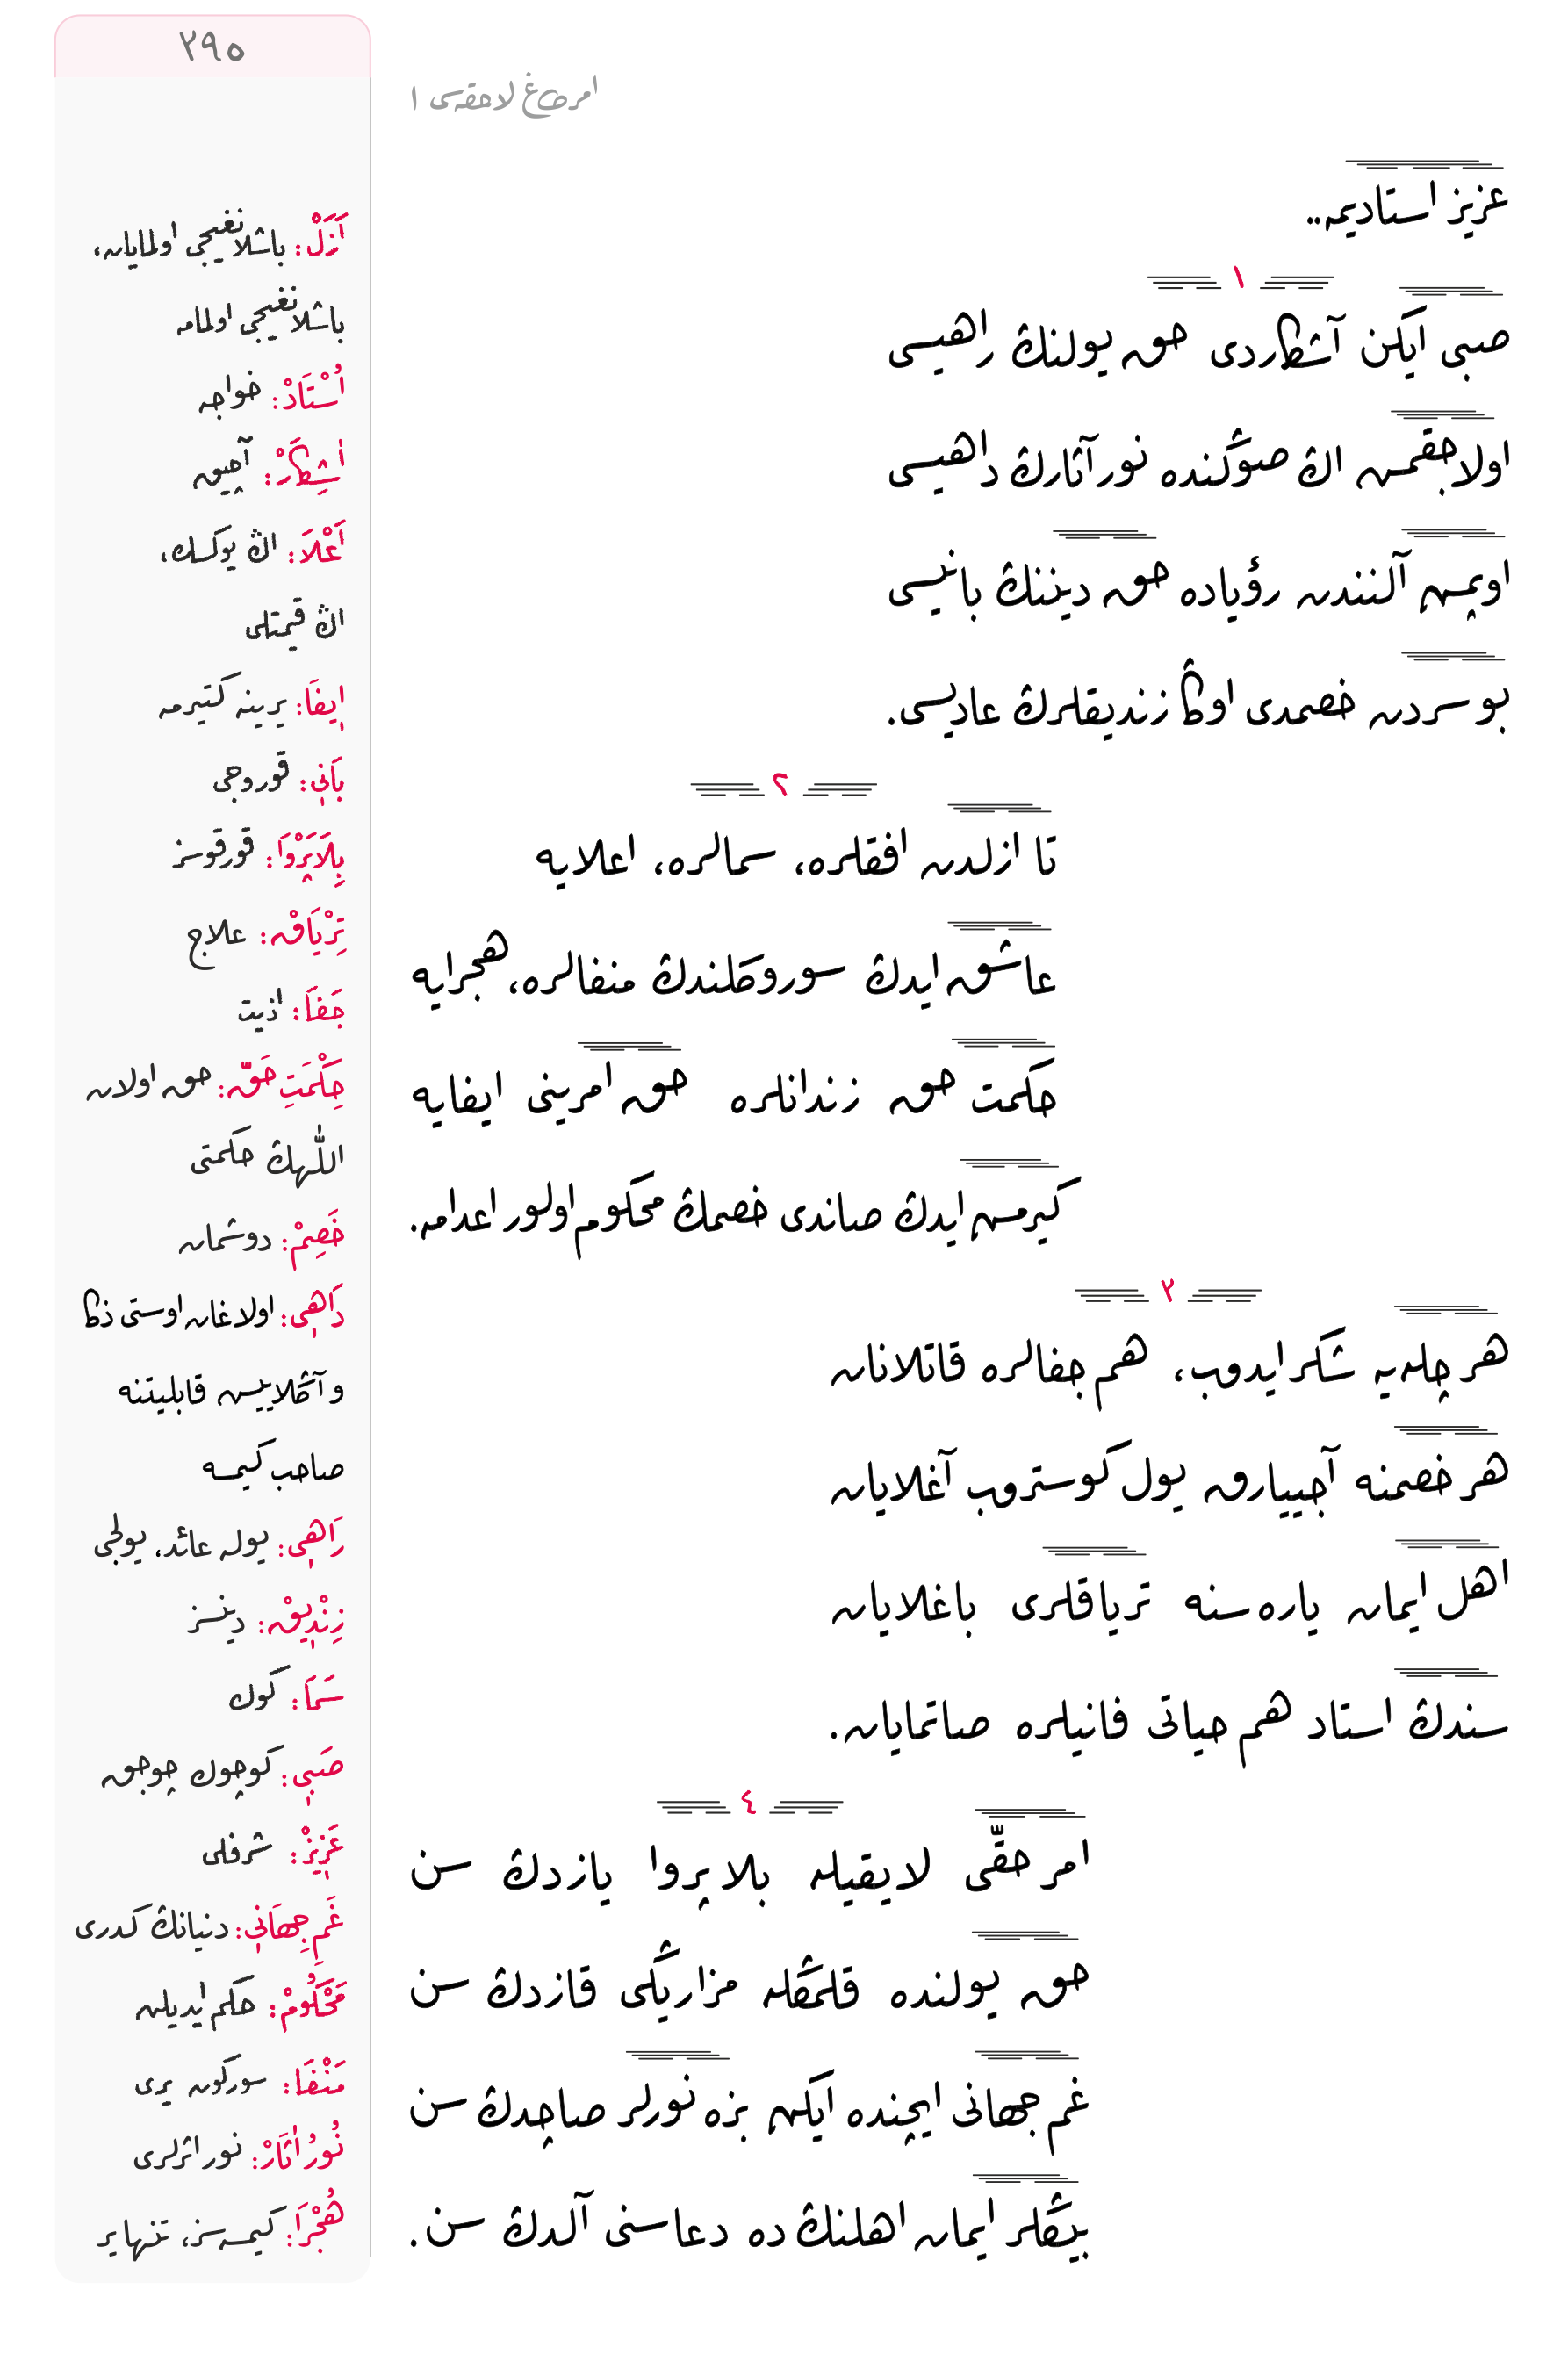 ٢٩٥
امرطاغ لاحقه‌سی ١
عزيز استاديمه..
١
صبی ايكن آشكاردی حق يولنڭ راهيسی
اولاجقمش اڭ صوڭنده نور آثارڭ داهيسی
اويمش آلنندن رؤياده حق ديننڭ بانيسی
بو سردن خصمدی اوڭا زنديقلرڭ عاديسی.
٢
تا ازلدن افقلره، سمالره، اعلايه
عاشق ايدڭ سوروكلندڭ منفالره، هجرايه
حكمت حق زندانلره حق امرينی ايفايه
كيرمش ايدڭ صاندی خصمڭ محكوم اولور اعدامه.
٣
هر چله‌يه شكر ايدوب، هم جفالره قاتلانان
هر خصمنه آجييارق يول كوستروب آغلايان
اهل ايمان ياره‌سنه ترياقلری باغلايان
سندڭ استاد هم حياتی فانيلره صاتمايان.
٤
امر حقّی لايقيله بلاپروا يازدڭ سن
حق يولنده قلمڭله مزاريڭی قازدڭ سن
غم جهانی ايچنده ايكن بزه نورلر صاچدڭ سن
بيڭلر ايمان اهلنڭ ده دعاسنی آلدڭ سن.
اَزَلْ: باشلانغيجی اولمايان،
باشلانغيجی اولمامه
اُسْتَادْ: خواجه
اٰشِكَارْ: آچيق
اَعْلَا: اڭ يوكسك،
اڭ قيمتلی
اِيفَا: يرينه كتيرمه
بَانِی: قوروجی
بِلَاپَرْوَا: قورقوسز
تِرْيَاقْ: علاج
جَفَا: اذيت
حِكْمَتِ حَقّ: حق اولان
اللّٰهڭ حكمتی
خَصِمْ: دوشمان
دَاهِی: اولاغان اوستی ذكا
و آڭلاييش قابليتنه
صاحب كيمسه
رَاهِی: يوله عائد، يولجی
زِنْدِيقْ: دينسز
سَمَا: كوك
صَبِی: كوچوك چوجق
عَزِيزْ: شرفلی
غَمِ جِهَانِی: دنيانڭ كدری
مَحْكُومْ: حكم ايديلن
مَنْفَا: سوركون يری
نُورُ اٰثَارْ: نور اثرلری
هُجْرَا: كيمسه‌سز، تنها ير